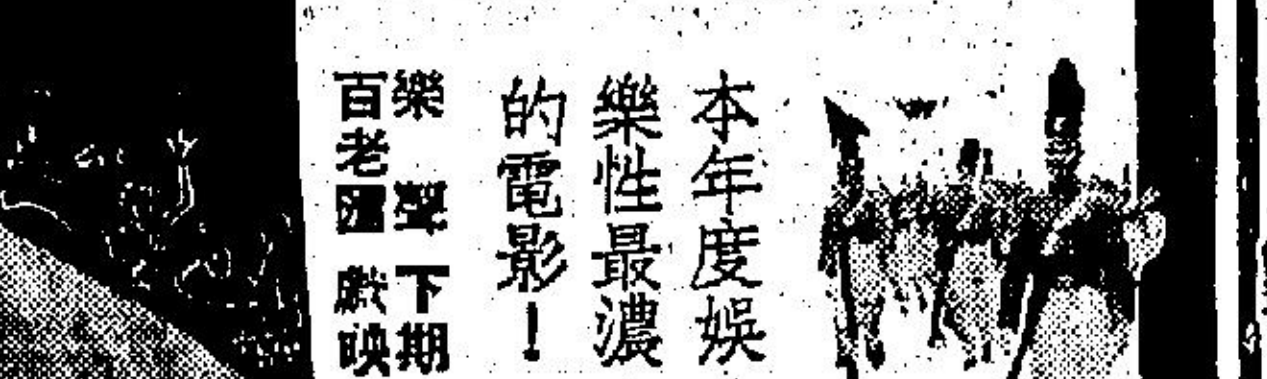 本年度娛
樂性最濃
的電影！
樂聲 下期
百老匯 獻映